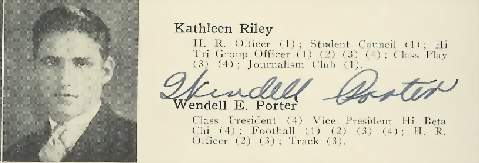 Kathleen Riley
H. R. Officer (1); Student Council (1); Hi
Tri Group Officer (1) (2) (3) (4); Class Play
(3) (4); Journalism Club (1).
Wendell Porter
Wendell E. Porter
Class President (4) Vice President Hi Beta
Chi (4); Football (1) (2) (3) (4); H. R.
Officer (2) (3); Track (3).